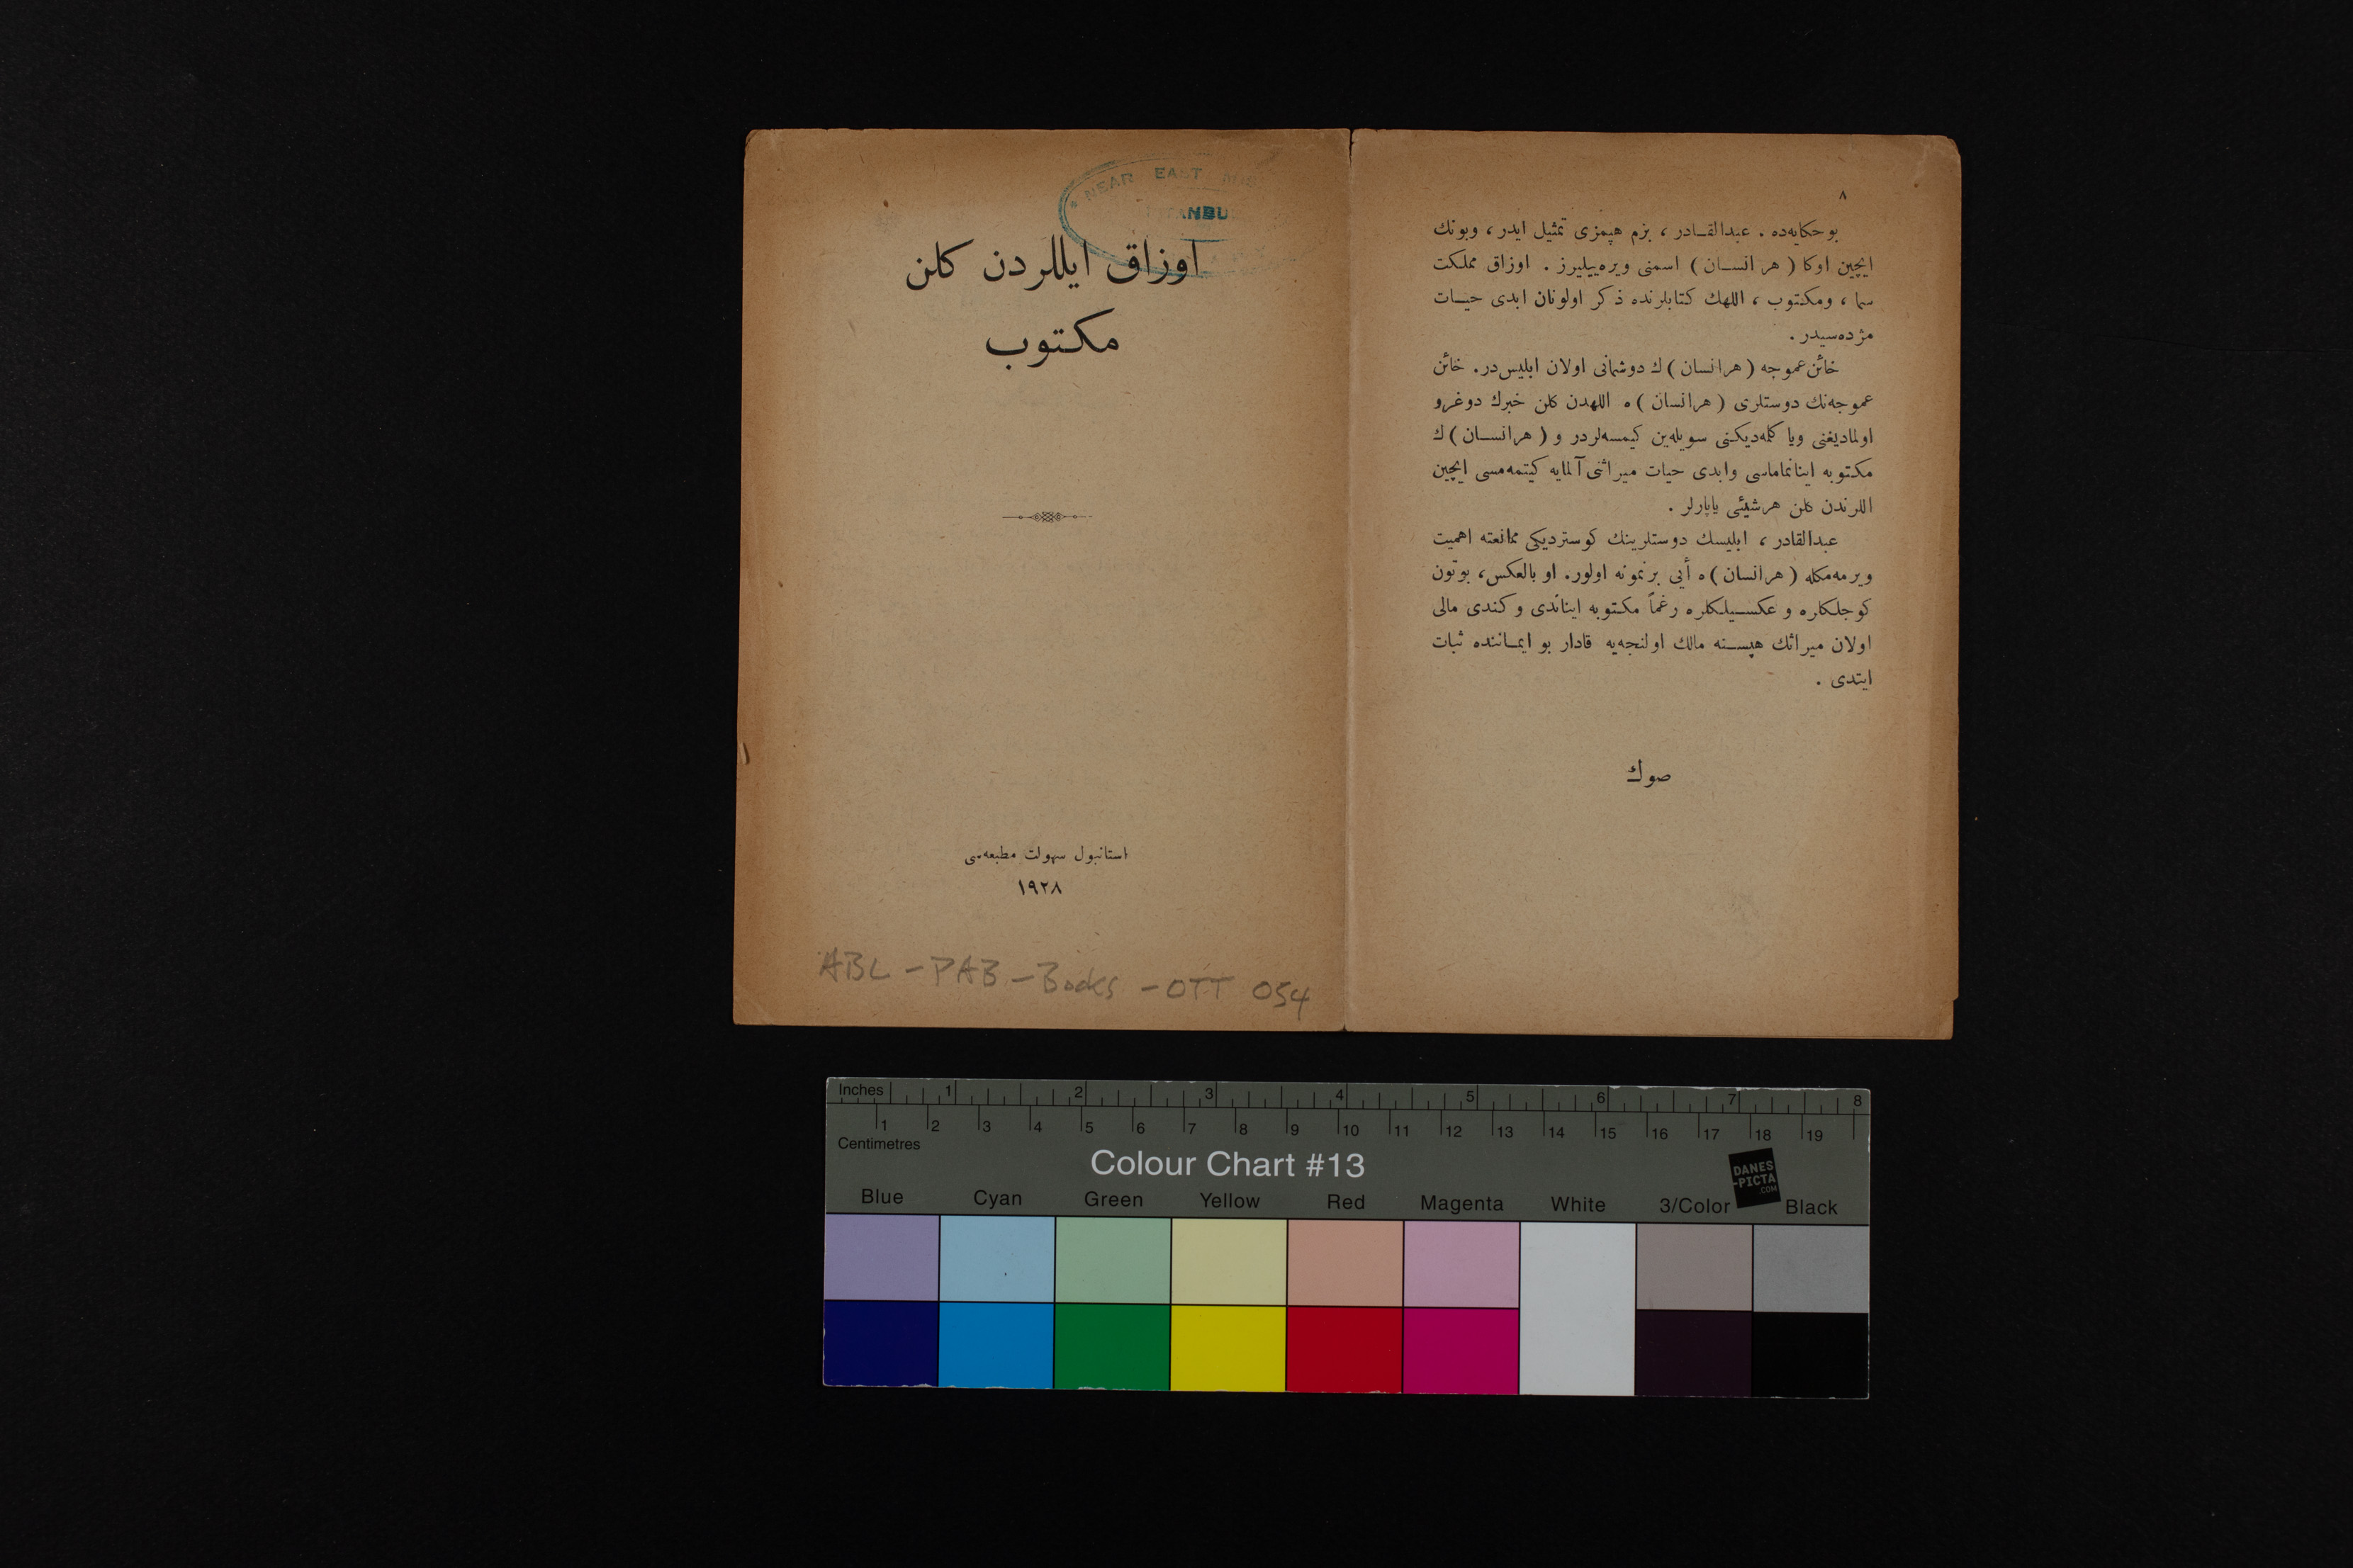 NEAR EAST
اوزاق ایللردن کلن
مکتوب
استانبول سهولت مطبعه‌سی
١٩٢٨
ABL-PAB-Books-OTT 054
٨
بو حکایه‌ده . عبدالقادر ، بزم هپمزی تمثیل ایدر ، وبونك
ایچین اوکا ( هر انسان ) اسمنی ویره‌بیلیرز . اوزاق مملکت
سما ، ومکتوب ، اللهك کتابلرنده ذکر اولونان ابدی حیات
مژده‌سیدر .
خائن عموجه ( هر انسان ) ك دوشمانی اولان ابلیس‌در . خائن
عموجه‌نك دوستلری ( هر انسان ) ه اللهدن کلن خبرك دوغرو
اولمادیغنی ویا کلمه‌دیکنی سویله‌ین کیمسه‌لردر و ( هر انسان ) ك
مکتوبه اینانماماسی وابدی حیات میراثنی آلمایه کیتمه‌مسی ایچین
اللرندن کلن هر شیئی یاپارلر .
عبدالقادر ، ابلیسك دوستلرینك کوستردیکی ممانعته اهمیت
ویرمه‌مکله ( هر انسان ) ه أیی بر نمونه اولور . او بالعکس ، بوتون
کوجلکلره و عکسیلکلره رغماً مکتوبه ایناندی و کندی مالی
اولان میراثك هپسنه مالك اولنجه‌یه قادار بو ایماننده ثبات
ایتدی .
صوك
Inches 1 2 3 4 5 6 7 8
1 2 3 4 5 6 7 8 9 10 11 12 13 14 15 16 17 18 19
Centimetres
Colour Chart #13
DANES
-PICTA
.COM
Blue Cyan Green Yellow Red Magenta White 3/Color Black